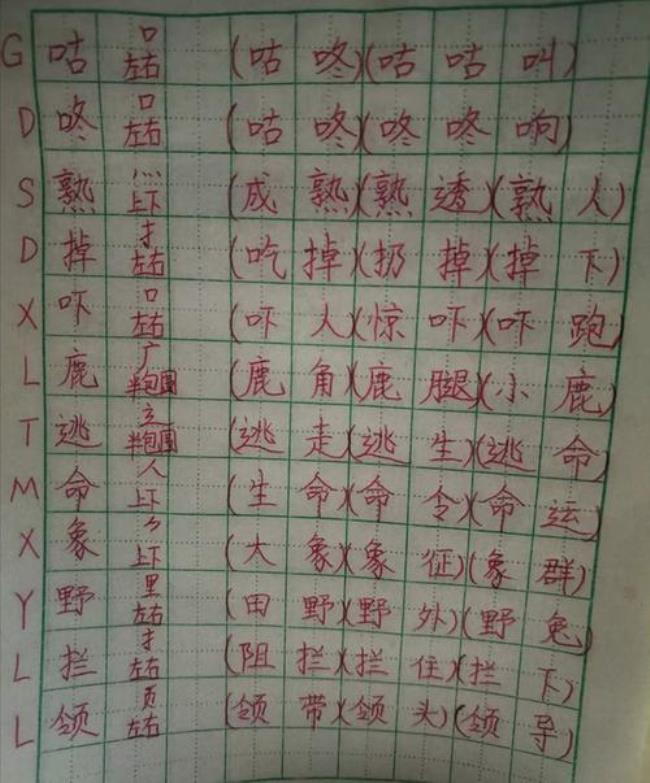 G 咕 口 左右 (咕咚)(咕咕叫)
D 咚 口 左右 (咕咚)(咚咚响)
S 熟 灬 上下 (成熟)(熟透)(熟人)
D 掉 扌 左右 (吃掉)(扔掉)(掉下)
X 吓 口 左右 (吓人)(惊吓)(吓跑)
L 鹿 广 半包围 (鹿角)(鹿腿)(小鹿)
T 逃 辶 半包围 (逃走)(逃生)(逃命)
M 命 人 上下 (生命)(命令)(命运)
X 象 ⺈ 上下 (大象)(象征)(象群)
Y 野 里 左右 (田野)(野外)(野兔)
L 拦 扌 左右 (阻拦)(拦住)(拦下)
L 领 页 左右 (领带)(领头)(领导)